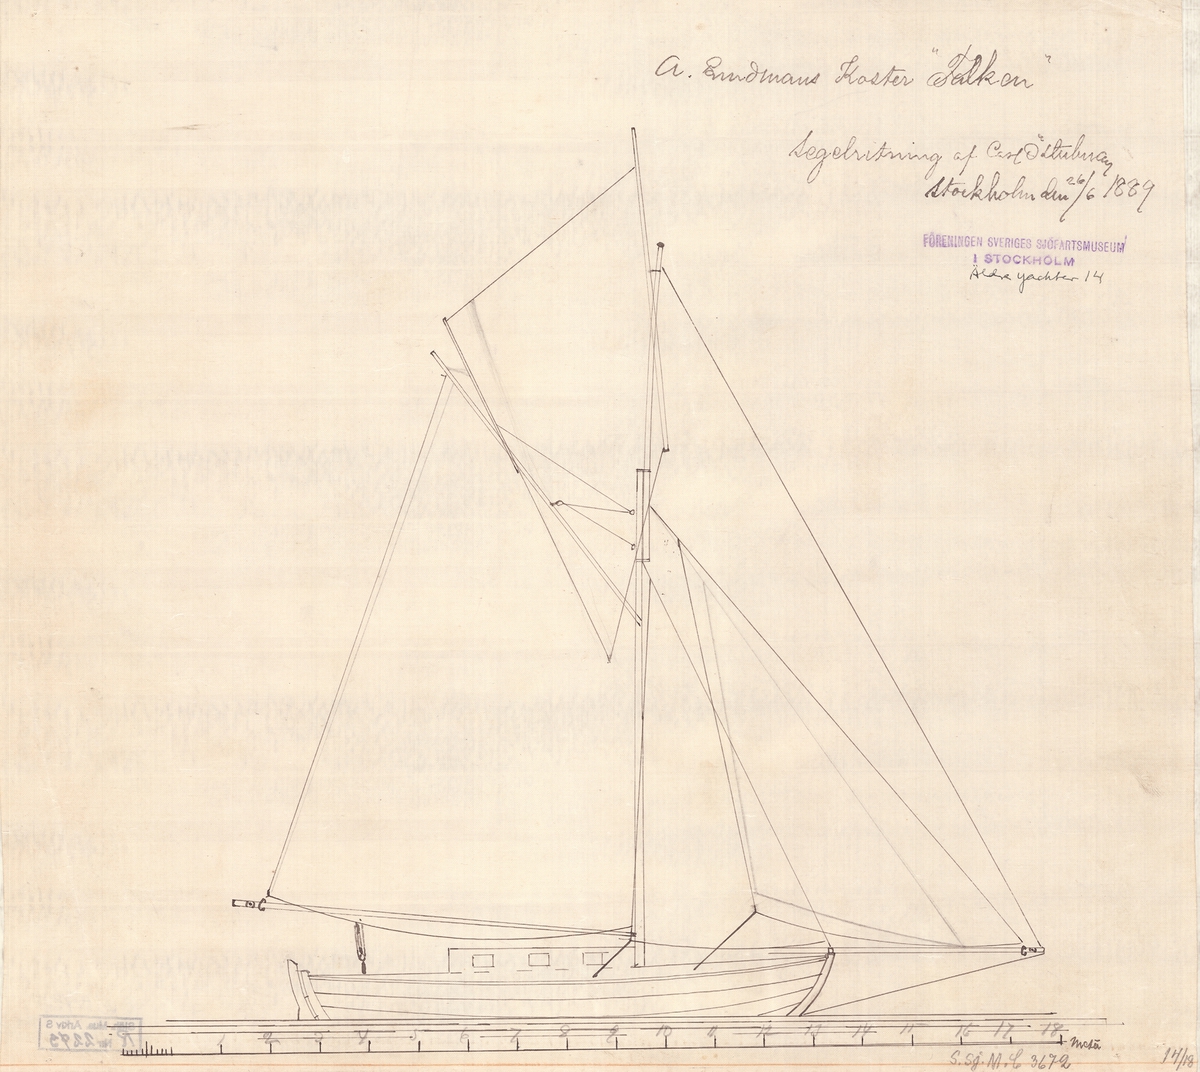 A. Lindmans Koster "Falken"
Segelritning af Carl Östuberg
Stockholm den 26/6 1889
FÖRENINGEN SVERIGES SJÖFARTSMUSEUM
I STOCKHOLM
Äldre yachter 14
1 2 3 4 5 6 7 8 9 10 11 12 13 14 15 16 17 18 Meter
S. Sj. M. C 3672
14/18